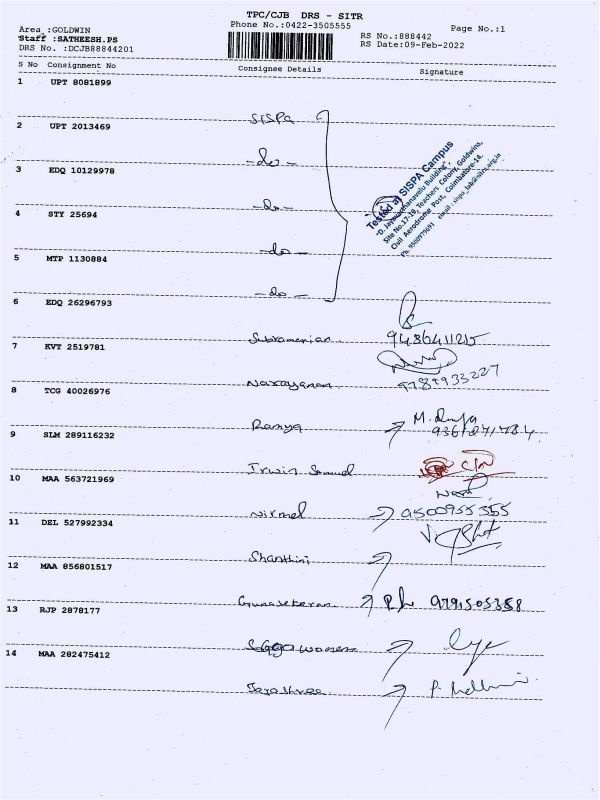 TPC/CJB DRS - SITR
Area :GOLDWIN Phone No.:0422-3505555 Page No.:1
Staff :SATHEESH.PS RS No.:888442
DRS No. :DCJB88844201 RS Date:09-Feb-2022
S No Consignment No Consignee Details Signature
1 UPT 8081899
SISPA
2 UPT 2013469
-do-
3 EDQ 10129978
-do-
4 STY 25694
-do-
5 MTP 1130884
-do-
6 EDQ 26296793
Subramanian 9486411215
7 KVT 2519781
Narayanan 9789933227
8 TCG 40026976
Ramya M.
9 SLM 289116232
Irwin Samuel
10 MAA 563721969
Nirmal 9500955355
11 DEL 527992334
Shanthini
12 MAA 856801517
Gunasekaran Ph 9791505358
13 RJP 2878177
14 MAA 282475412
Jayashree P.
Tested at SISPA Campus
"D. Jayavarthanavelu Building",
Site No.17-19, Teachers Colony, Goldwins,
Civil Aerodrome Post, Coimbatore-14.